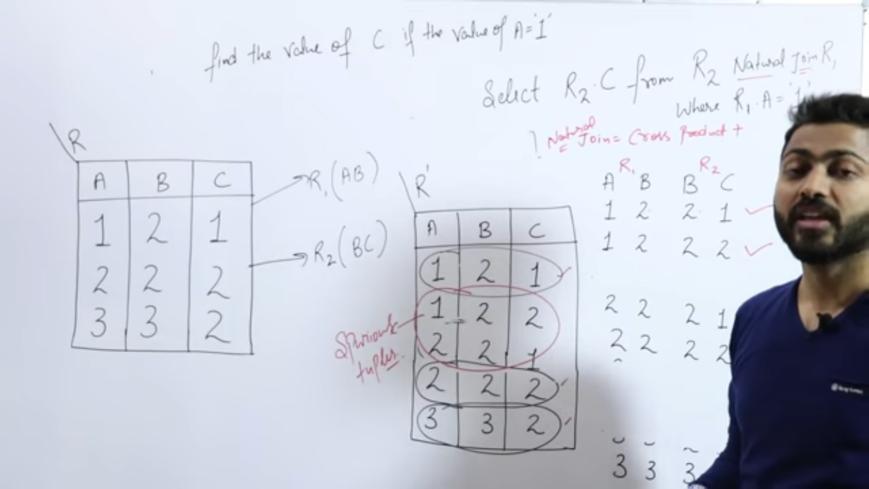 find the value of C if the value of A='1'
Select R2.C from R2 Natural Join R1
Where R1.A='1'
Natural
Join = Cross Product +
R
A B C
1 2 1
2 2 2
3 3 2
R1(AB)
R2(BC)
R'
A B C
1 2 1
1 2 2
2 2 1
2 2 2
3 3 2
Spurious
tuples.
R1 R2
A B B C
1 2 2 1
1 2 2 2
2 2 2 1
2 2 2 2
3 3 3